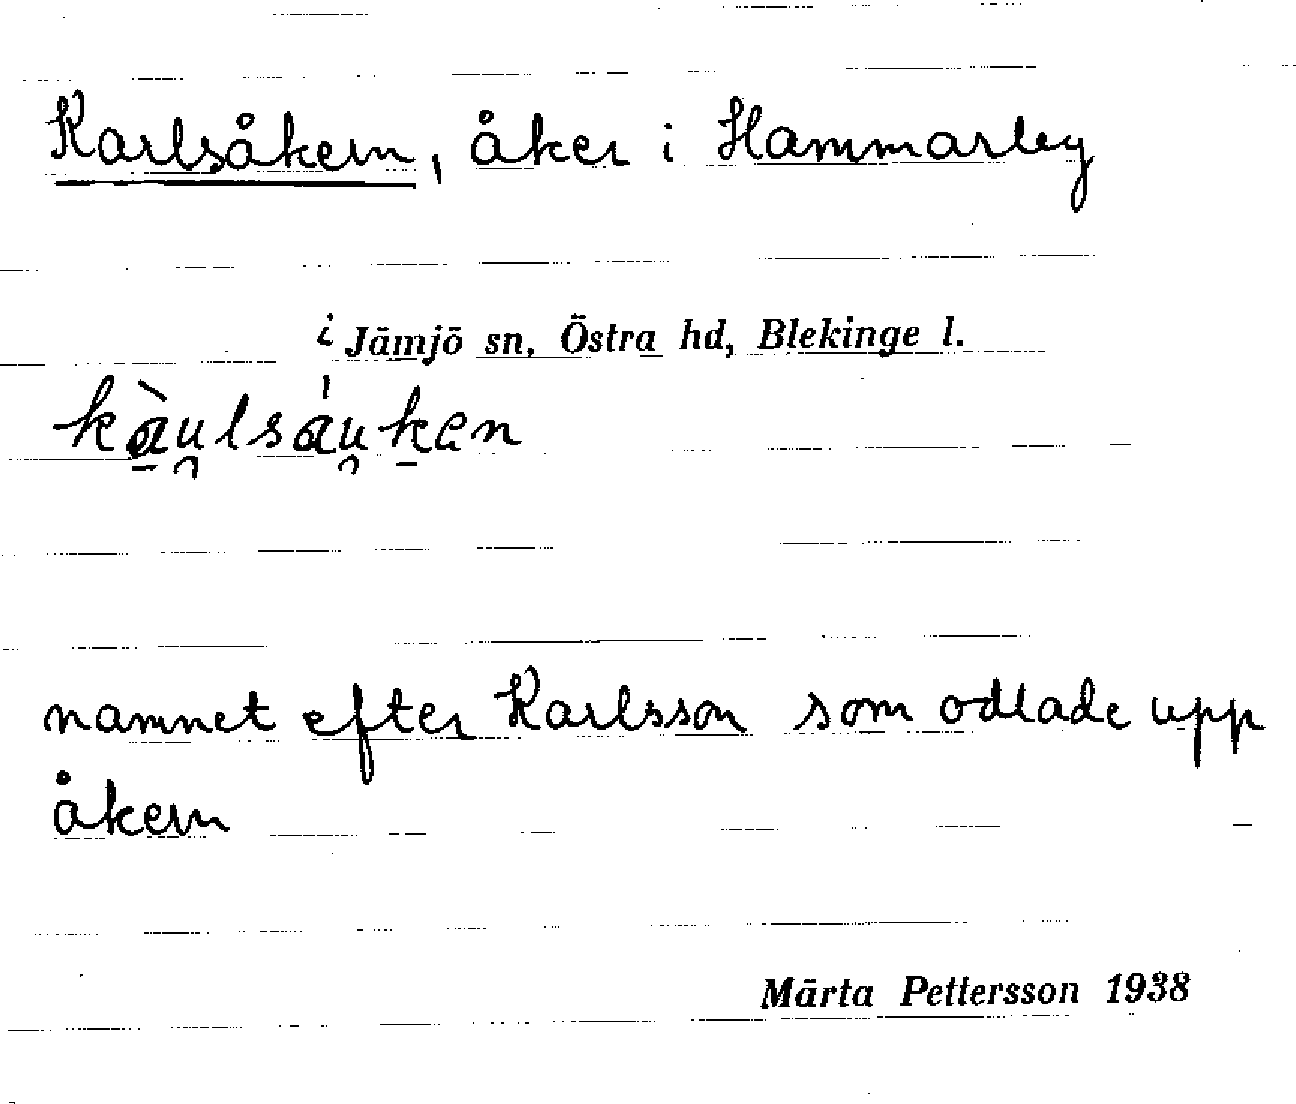 Karlsåkern, åker i Hammarley
i Jämjö sn, Östra hd, Blekinge l.
kàu̯lsáu̯ken
namnet efter Karlsson som odlade upp
åkern
Märta Pettersson 1938